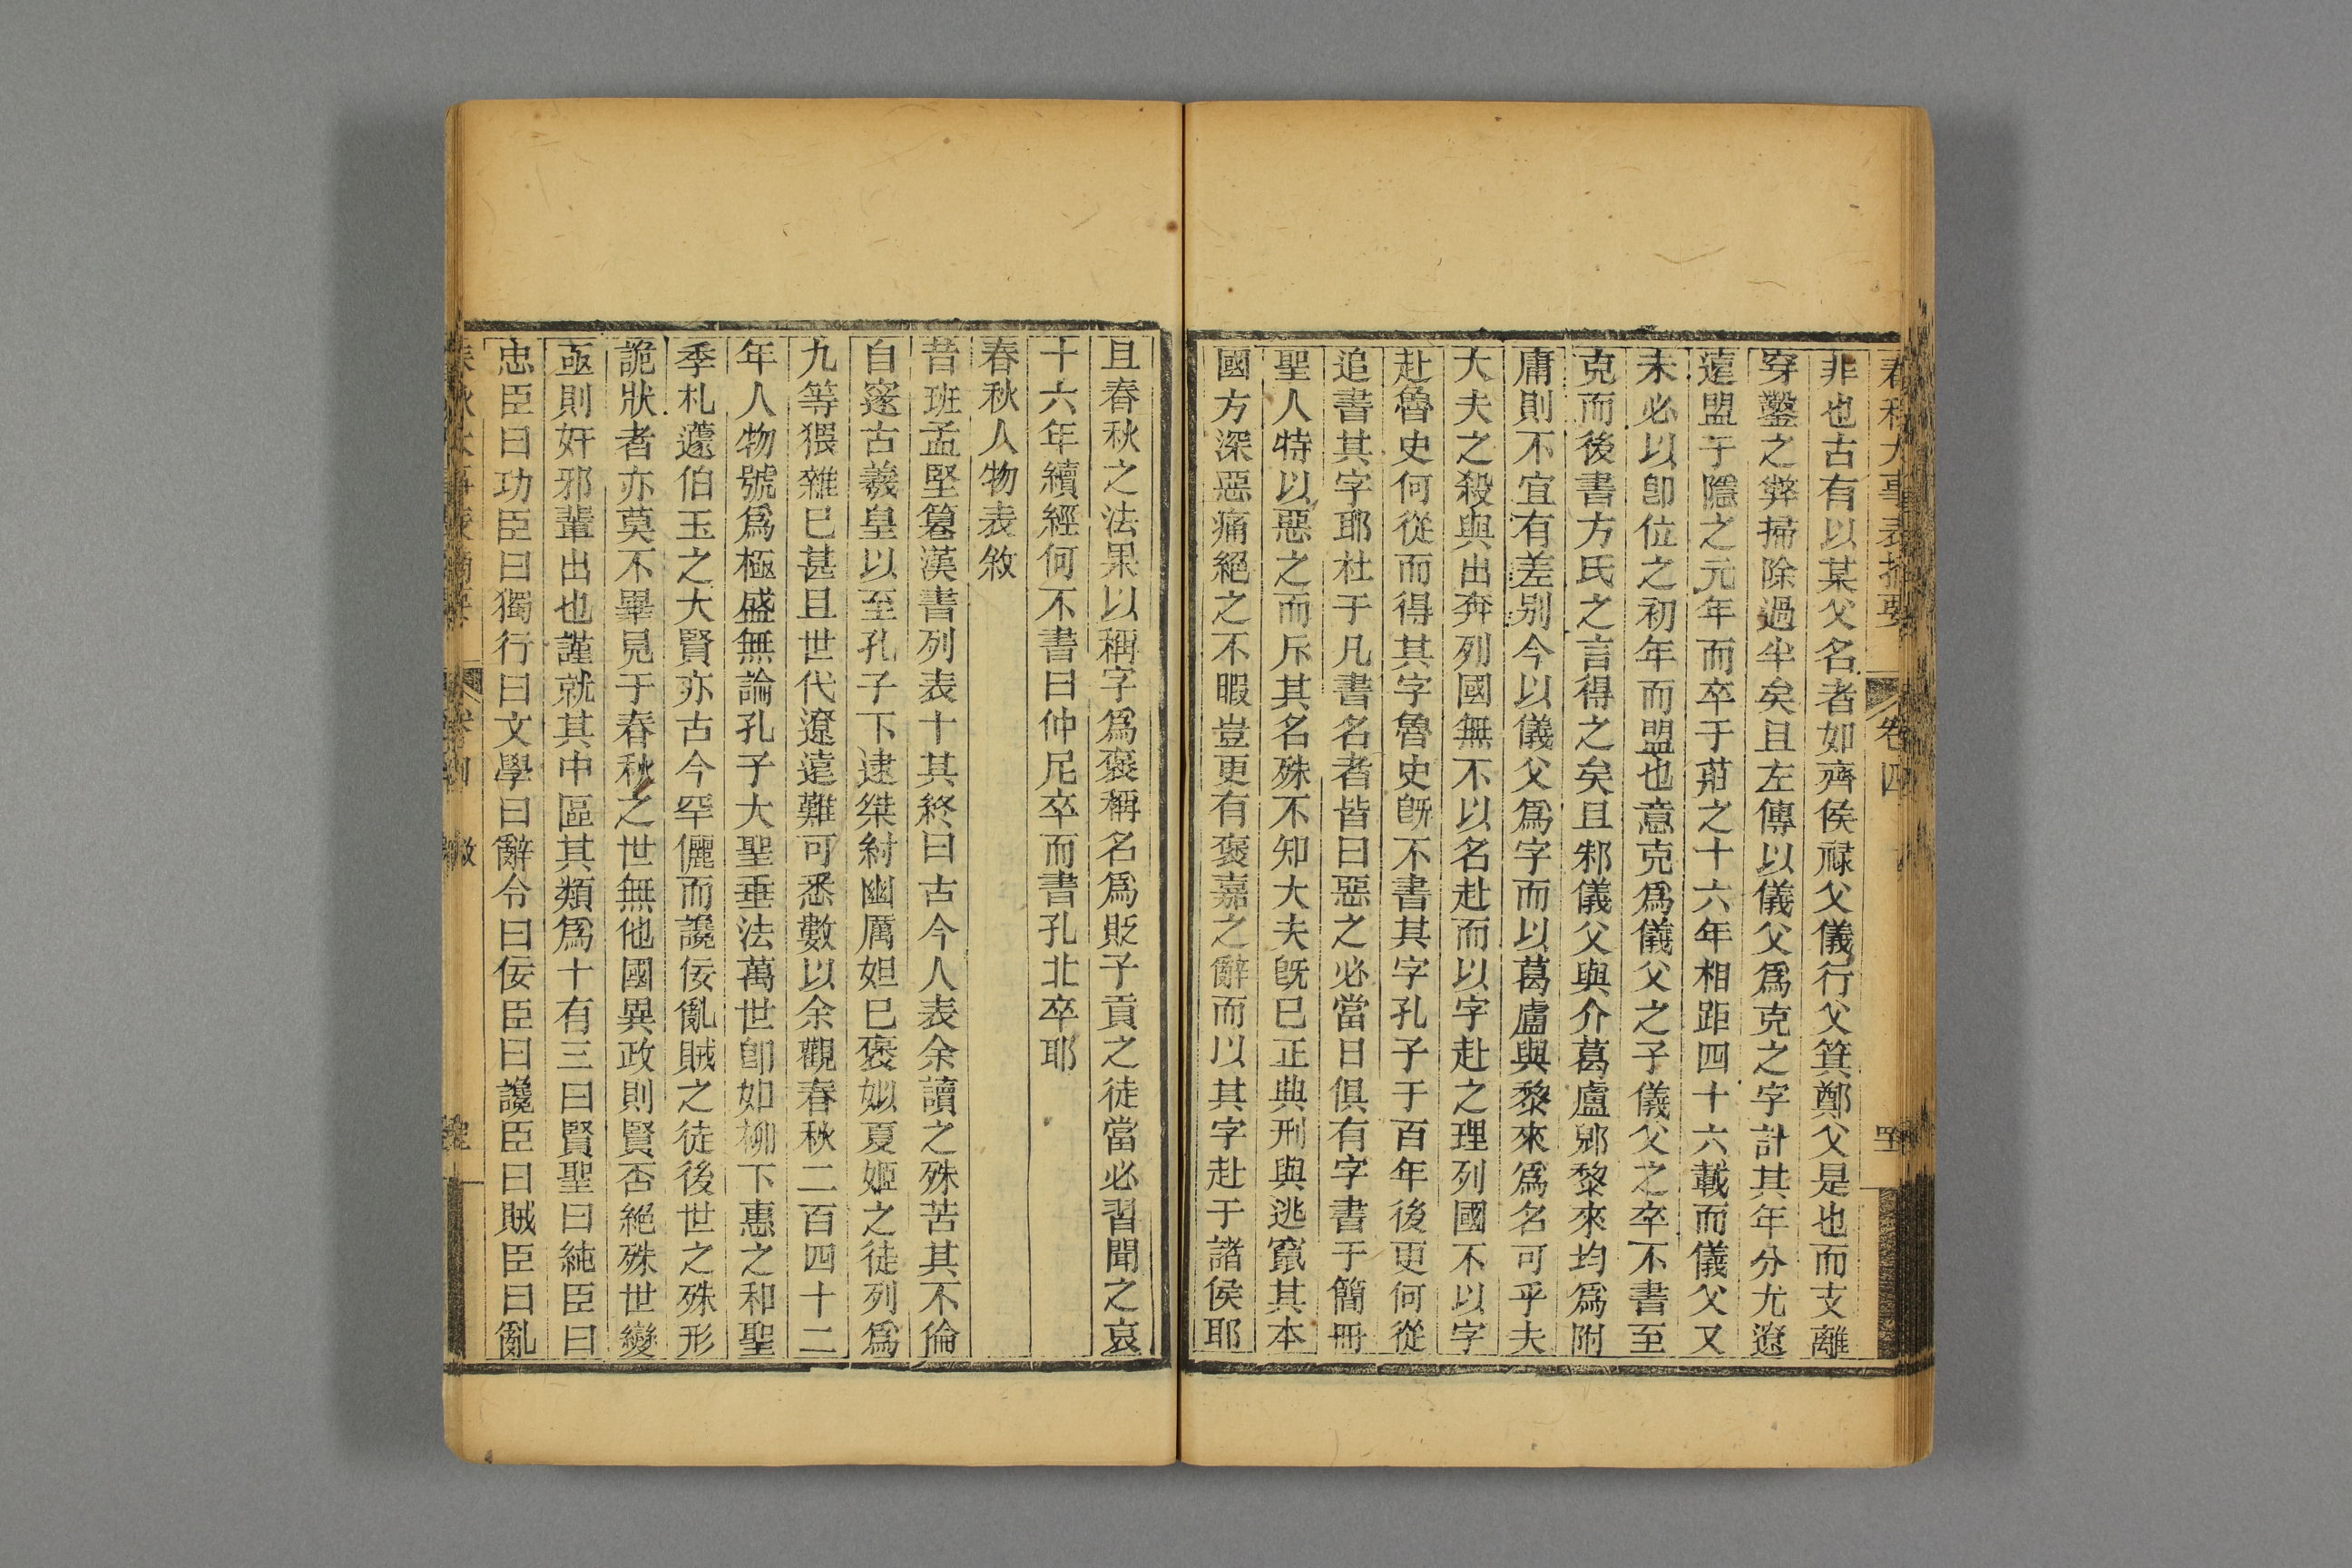 春秋大事表摘要 卷四
非也古有以某父名者如齊侯祿父儀行父箕鄭父是也而支離
穿鑿之弊掃除過半矣且左傳以儀父爲克之字計其年分尤遼
遠盟于隱之元年而卒于莊之十六年相距四十六載而儀父又
未必以卽位之初年而盟也意克爲儀父之子儀父之卒不書至
克而後書方氏之言得之矣且邾儀父與介葛盧郳黎來均爲附
庸則不宜有差别今以儀父爲字而以葛盧與黎來爲名可乎夫
大夫之殺與出奔列國無不以名赴而以字赴之理列國不以字
赴魯史何從而得其字魯史旣不書其字孔子于百年後更何從
追書其字耶杜于凡書名者皆曰惡之必當日俱有字書于簡冊
聖人特以惡之而斥其名殊不知大夫旣已正典刑與逃竄其本
國方深惡痛絕之不暇豈更有褒嘉之辭而以其字赴于諸侯耶
且春秋之法果以稱字爲褒稱名爲貶子貢之徒當必習聞之哀
十六年續經何不書曰仲尼卒而書孔丘卒耶
春秋人物表敘
昔班孟堅篹漢書列表十其終曰古今人表余讀之殊苦其不倫
自邃古羲皇以至孔子下逮桀紂幽厲妲已褒姒夏姬之徒列爲
九等猥雜已甚且世代遼遠難可悉數以余觀春秋二百四十二
年人物號爲極盛無論孔子大聖垂法萬世卽如柳下惠之和聖
季札蘧伯玉之大賢亦古今罕儷而讒佞亂賊之徒後世之殊形
詭狀者亦莫不畢見于春秋之世無他國異政則賢否絕殊世變
亟則奸邪輩出也謹就其中區其類爲十有三曰賢聖曰純臣曰
忠臣曰功臣曰獨行曰文學曰辭令曰佞臣曰讒臣曰賊臣曰亂
春秋大事表摘要